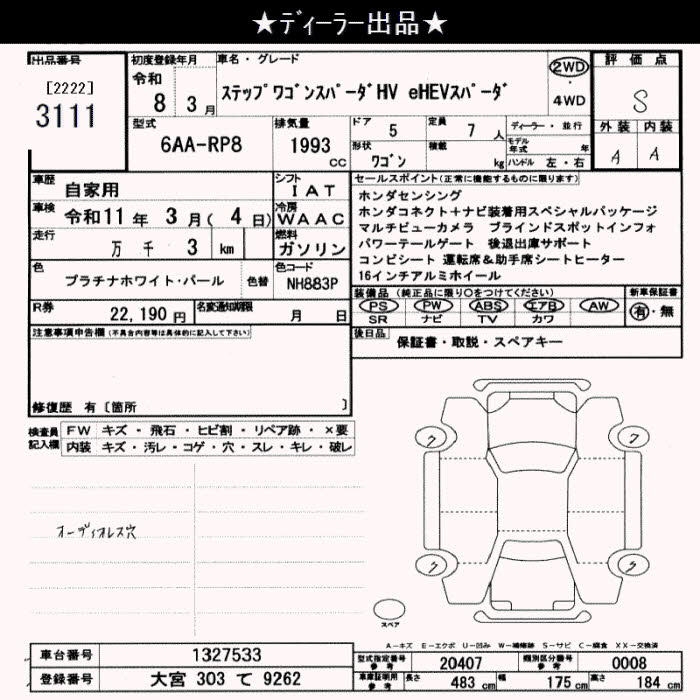 ★ディーラー出品★
出品番号
[2222]
3111
初度登録年月
令和
8 3月
車名・グレード
ステップワゴンスパーダHV eHEVスパーダ
2WD
・
4WD
評価点
S
外装 内装
A A
型式
6AA-RP8
排気量
1993
cc
ドア
5
定員
7 人
形状
ワゴン
積載
kg
ディーラー・並行
モデル年式 年
ハンドル 左・右
車歴
自家用
シフト
IAT
車検
令和11年 3月(4日)
冷房
WAAC
走行
万 千 3 km
燃料
ガソリン
色
プラチナホワイト・パール
色替
色コード
NH883P
R券
22,190円
名変通知期限
月 日
セールスポイント(正常に機能するものに限ります)
ホンダセンシング
ホンダコネクト+ナビ装着用スペシャルパッケージ
マルチビューカメラ ブラインドスポットインフォ
パワーテールゲート 後退出庫サポート
コンビシート 運転席&助手席シートヒーター
16インチアルミホイール
装備品(純正品に限り○をつけてください)
新車保証書
PS PW ABS エアB AW
SR ナビ TV カワ
有・無
後日品
保証書・取説・スペアキー
注意事項申告欄(不具合内容等は具体的に記入して下さい)
修復歴 有〔箇所 〕
検査員記入欄
FW キズ・飛石・ヒビ割・リペア跡・×要
内装 キズ・汚レ・コゲ・穴・スレ・キレ・破レ
オーディオレス穴
ワ ワ
ワ ワ
スペア
A－キズ E－エクボ U－凹み W－補修跡 S－サビ C－腐食 XX－交換済
車台番号
1327533
登録番号
大宮 303 て 9262
型式指定番号
参考
20407
類別区分番号
参考
0008
車庫証明用
参考
長さ 483 cm 幅 175 cm 高さ 184 cm